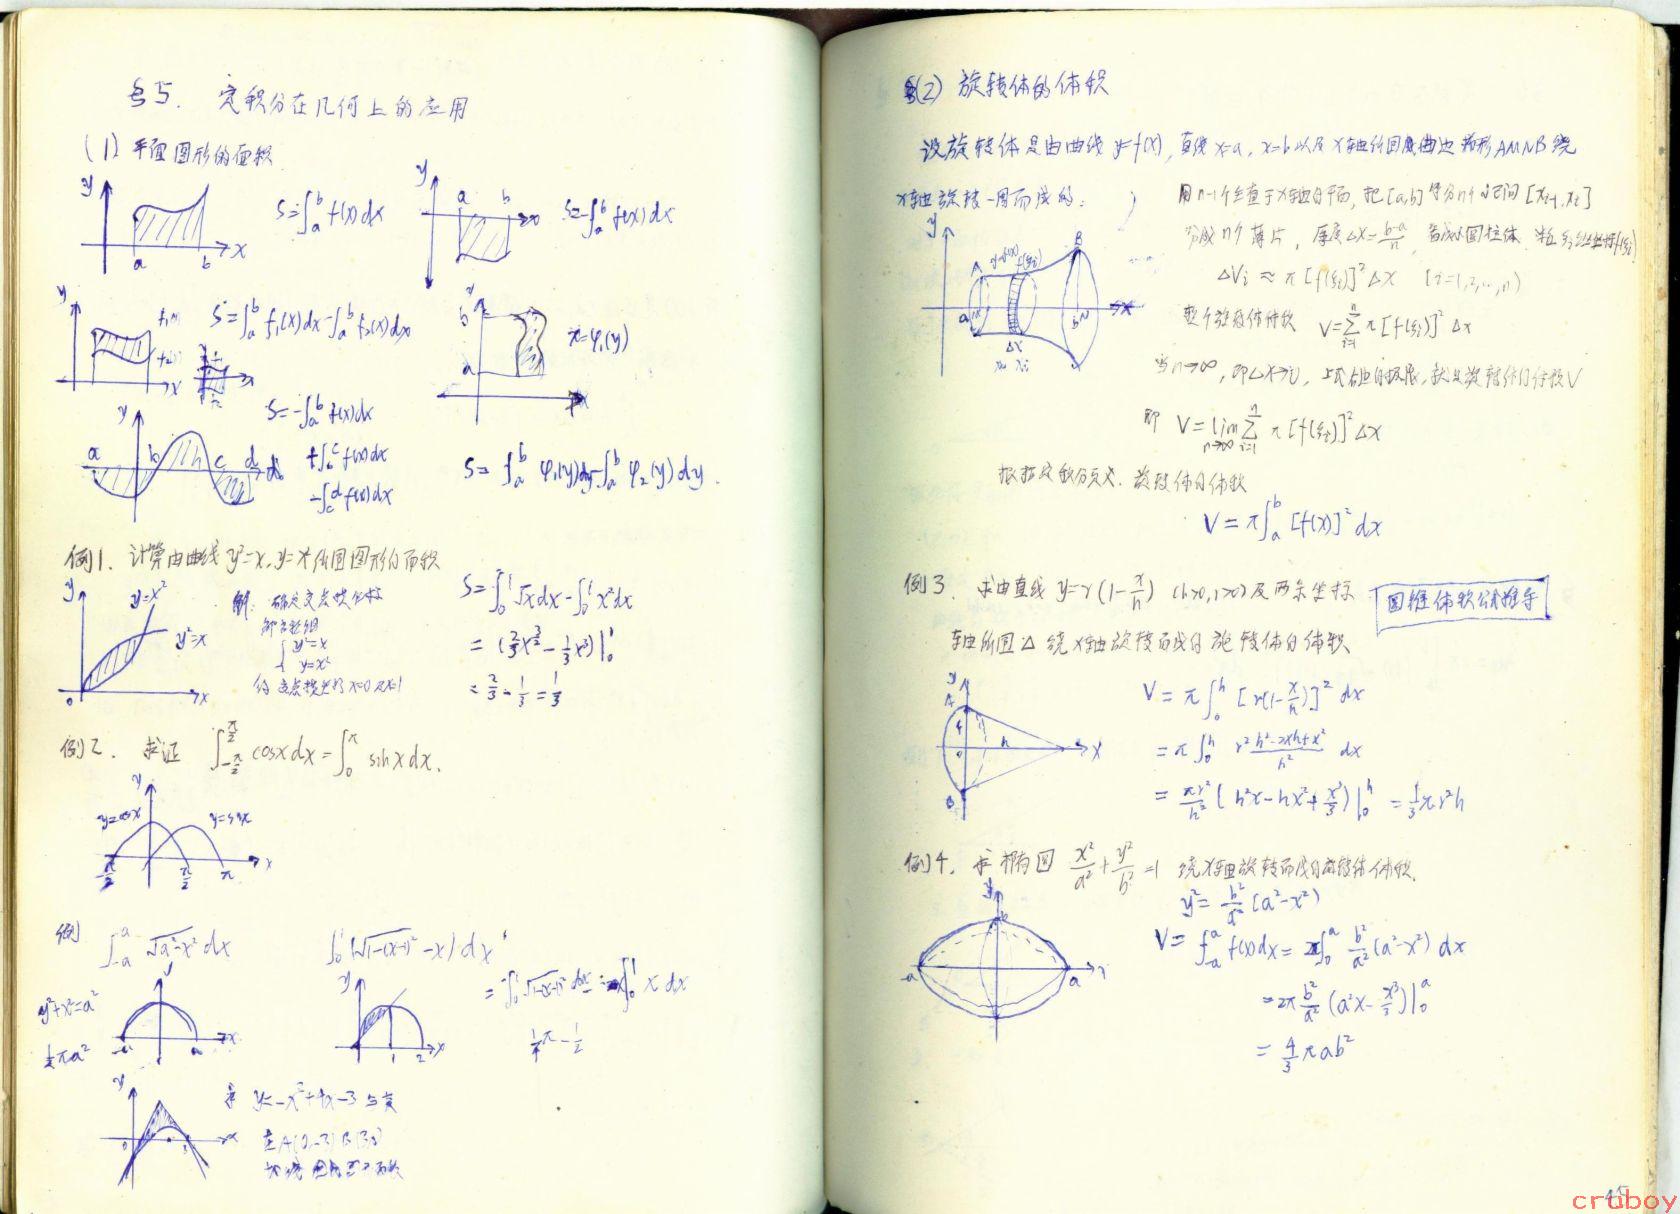 §5. 定积分在几何上的应用
(1) 平面图形的面积
y
x
a
b
S=∫_a^b f(x)dx
y
a
b
x
S=-∫_a^b f(x)dx
y
x
S=∫_a^b f₁(x)dx-∫_a^b f₂(x)dx
y
b
a
x=φ₁(y)
x
y
a
b
c
d
S=-∫_a^b f(x)dx
+∫_b^c f(x)dx
-∫_c^d f(x)dx
S=∫_a^b φ₁(y)dy-∫_a^b φ₂(y)dy.
例1. 计算由曲线 y²=x, y=x² 所围图形的面积
y
y=x²
y²=x
0
x
解: 确定交点横坐标
解方程组
{ y²=x
y=x²
得交点横坐标 x=0及x=1
S=∫_0^1 √x dx-∫_0^1 x²dx
=(⅔x^{3/2}-⅓x³)|_0^1
=⅔-⅓=⅓
例2. 求证 ∫_{-π/2}^{π/2} cosxdx=∫_0^π sinxdx.
y
y=cosx
y=sinx
-π/2
π/2
π
x
例 ∫_{-a}^a √a²-x² dx
y
y²+x²=a²
½πa²
-a
a
x
∫_0^1 (√1-(x-1)² -x)dx
=∫_0^1 √1-(x-1)² dx-∫_0^1 xdx
¼π-½
y
1
2
x
y
0
3
x
求 y=-x²+4x-3 与其
在A(0,-3) B(3,0)
切线
§(2) 旋转体的体积
设旋转体是由曲线 y=f(x), 直线 x=a, x=b 以及x轴所围成曲边梯形AMNB绕
x轴旋转一周而成的:
用n-1个垂直于x轴的平面, 把[a,b]等分n个小区间 [x_{i-1}, x_i]
分成n个薄片, 厚度Δx=(b-a)/n, 看成小圆柱体
ΔVi≈π[f(ξi)]²Δx (i=1,2,…,n)
整个旋转体体积 V=Σ_{i=1}^n π[f(ξi)]²Δx
当n→∞, 即Δx→0, 上式右边的极限, 就是旋转体的体积V
即 V=lim_{n→∞} Σ_{i=1}^n π[f(ξi)]²Δx
根据定积分定义. 旋转体的体积
V=π∫_a^b [f(x)]²dx
y
A
y=f(x)
f(ξi)
B
a
b
N
Δx
x
例3. 求由直线 y=r(1-x/h) (h>0, r>0) 及两条坐标
轴所围△绕x轴旋转而成的旋转体的体积
圆锥体积公式推导
y
A
r
0
h
x
B
V=π∫_0^h [r(1-x/h)]² dx
=π∫_0^h r² (h²-2xh+x²)/h² dx
=πr²/h² (h²x-hx²+x³/3)|_0^h =⅓πr²h
例4. 求椭圆 x²/a²+y²/b²=1 绕x轴旋转而成的旋转体体积.
y
b
-a
a
x
y²=b²/a² (a²-x²)
V=∫_{-a}^a f(x)dx=2π∫_0^a b²/a² (a²-x²) dx
=2π b²/a² (a²x-x³/3)|_0^a
=4/3 πab²
45
cruboy